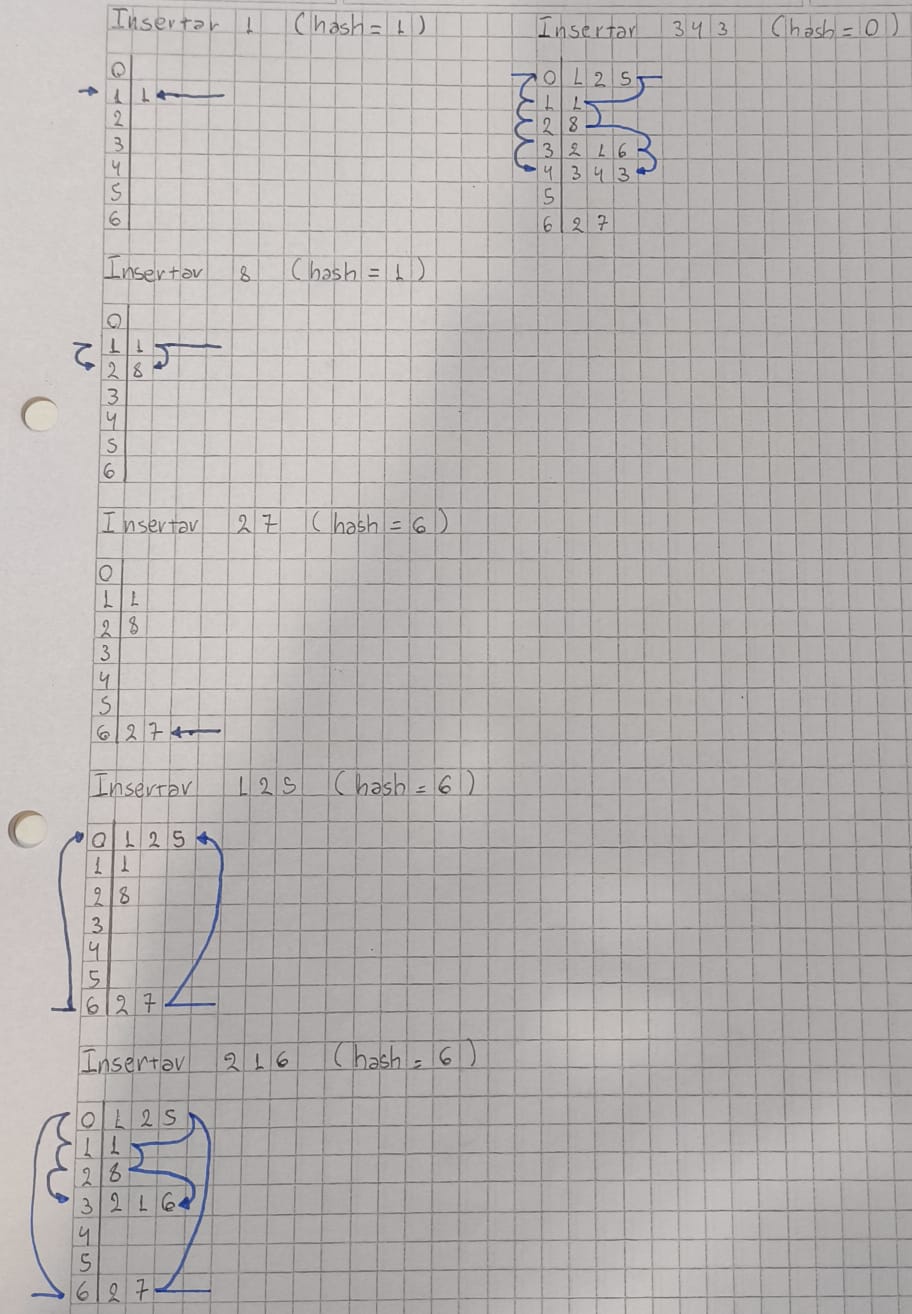 Insertar 1 (hash = 1)
0
1 1
2
3
4
5
6
Insertar 8 (hash = 1)
0
1 1
2 8
3
4
5
6
Insertar 27 (hash = 6)
0
1 1
2 8
3
4
5
6 27
Insertar 125 (hash = 6)
0 125
1 1
2 8
3
4
5
6 27
Insertar 216 (hash = 6)
0 125
1 1
2 8
3 216
4
5
6 27
Insertar 343 (hash = 0)
0 125
1 1
2 8
3 216
4 343
5
6 27